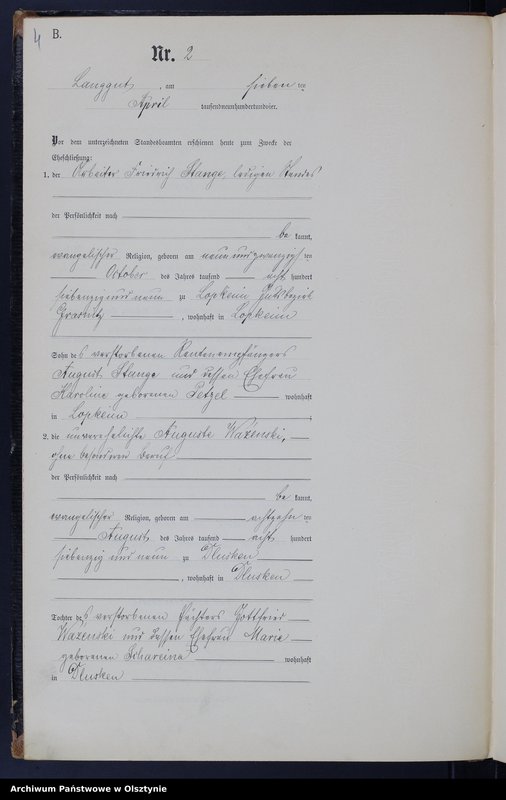 4
B.
Nr. 2
Langgut, am sieben ten
April tausendneunhundertundvier.
Vor dem unterzeichneten Standesbeamten erschienen heute zum Zwecke der
Eheschließung:
1. der Arbeiter Friedrich Stange, ledigen Standes
der Persönlichkeit nach
be kannt,
evangelischer Religion, geboren am neun und zwanzigsten
October des Jahres tausend acht hundert
siebenzig und neun zu Lopkeim Gutsbezirk
, wohnhaft in Lopkeim
Sohn des verstorbenen Rentenempfängers
August Stange und dessen Ehefrau
Karoline geborenen Petzel wohnhaft
in Lopkeim ;
2. die unverehelichte Auguste Wazenski,
ohne besonderen Beruf
der Persönlichkeit nach
be kannt,
evangelischer Religion, geboren am achtzehn ten
August des Jahres tausend acht hundert
siebenzig und neun zu Dlusken
, wohnhaft in Dlusken
Tochter des verstorbenen Pächters Gottfried
Wazenski und dessen Ehefrau Marie
geborenen Schareina wohnhaft
in Dlusken
Archiwum Państwowe w Olsztynie